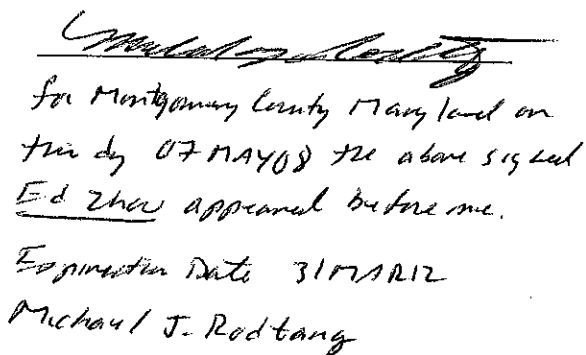 for Montgomery County Maryland on
this dy 07 MAY08 the above signed
Ed Zhou appeared before me.
Expiration Date 31MAR12
Michael J. Rodtang